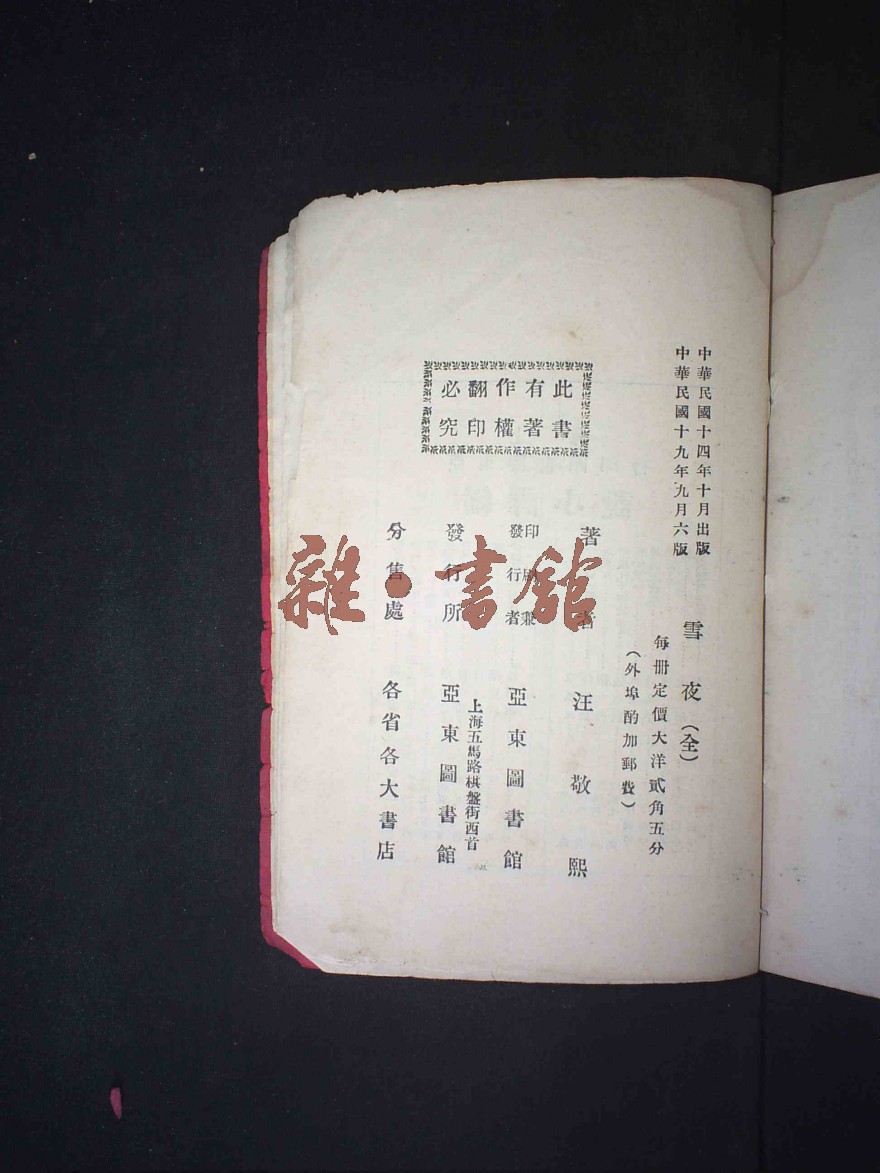 中華民國十四年十月出版
中華民國十九年九月六版
雪夜(全)
每冊定價大洋貳角五分
(外埠酌加郵費)
此書
有著
作權
翻印
必究
著者 汪敬熙
印刷兼
發行者
亞東圖書館
上海五馬路棋盤街西首
發行所 亞東圖書館
分售處 各省各大書店
雜·書館